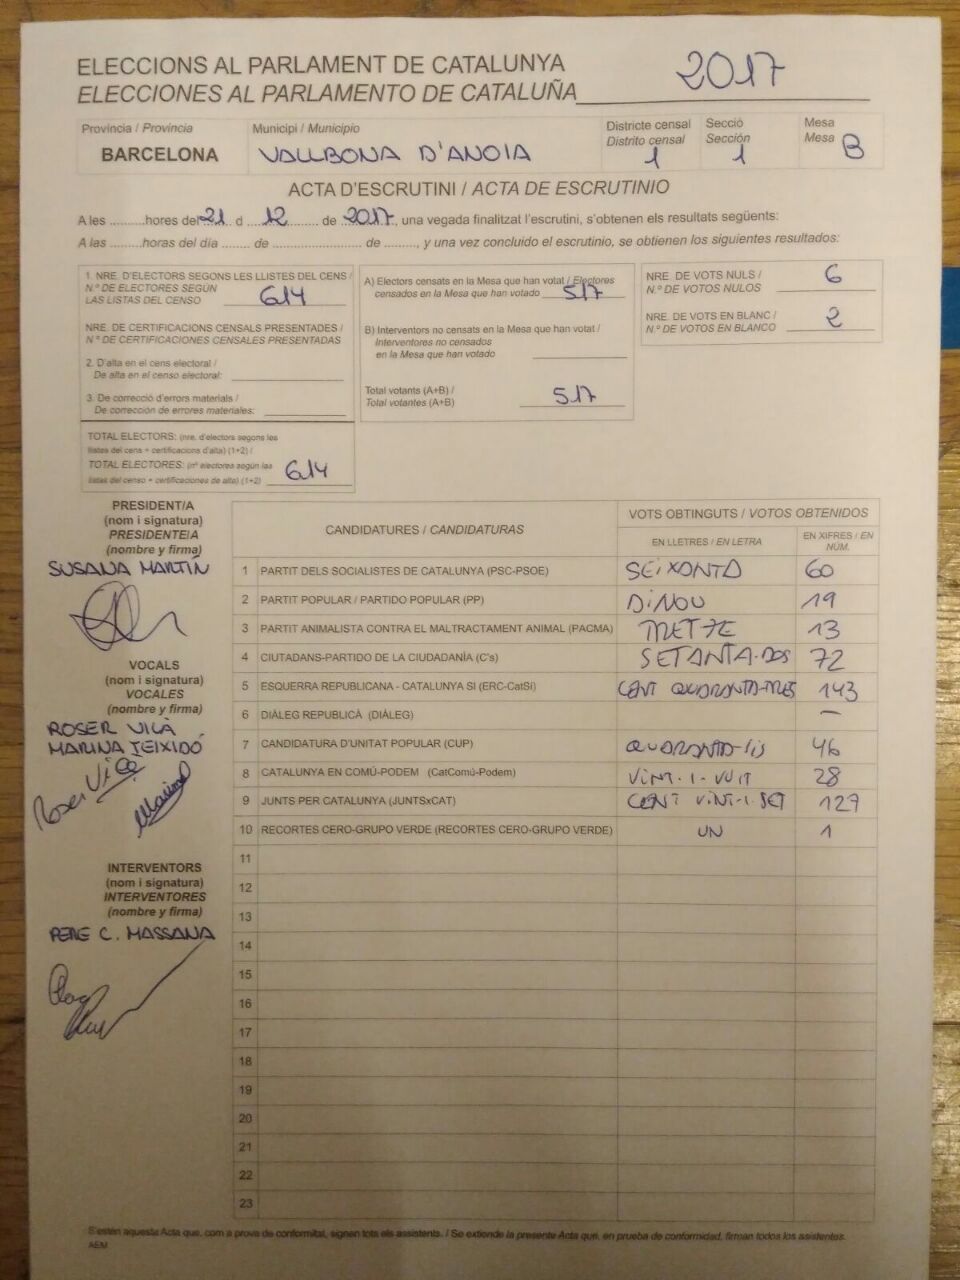 ELECCIONS AL PARLAMENT DE CATALUNYA
ELECCIONES AL PARLAMENTO DE CATALUÑA 2017
Província / Provincia
BARCELONA
Municipi / Municipio
VALLBONA D'ANOIA
Districte censal
Distrito censal
1
Secció
Sección
1
Mesa
Mesa B
ACTA D'ESCRUTINI / ACTA DE ESCRUTINIO
A les ..........hores del 21 d 12 de 2017, una vegada finalitzat l'escrutini, s'obtenen els resultats següents:
A las ........horas del día ....... de ........................ de ........, y una vez concluido el escrutinio, se obtienen los siguientes resultados:
1. NRE. D'ELECTORS SEGONS LES LLISTES DEL CENS /
N.º DE ELECTORES SEGÚN
LAS LISTAS DEL CENSO 614
NRE. DE CERTIFICACIONS CENSALS PRESENTADES /
N.º DE CERTIFICACIONES CENSALES PRESENTADAS
2. D'alta en el cens electoral /
De alta en el censo electoral:
3. De correcció d'errors materials /
De corrección de errores materiales:
TOTAL ELECTORS: (nre. d'electors segons les
llistes del cens + certificacions d'alta) (1+2) /
TOTAL ELECTORES: (nº electores según las
listas del censo + certificaciones de alta) (1+2) 614
A) Electors censats en la Mesa que han votat / Electores
censados en la Mesa que han votado 517
B) Interventors no censats en la Mesa que han votat /
Interventores no censados
en la Mesa que han votado
Total votants (A+B) /
Total votantes (A+B) 517
NRE. DE VOTS NULS /
N.º DE VOTOS NULOS 6
NRE. DE VOTS EN BLANC /
N.º DE VOTOS EN BLANCO 2
PRESIDENT/A
(nom i signatura)
PRESIDENTE/A
(nombre y firma)
SUSANA MARTÍN
VOCALS
(nom i signatura)
VOCALES
(nombre y firma)
ROSER VILÀ
MARINA TEIXIDÓ
Roser Vilà
INTERVENTORS
(nom i signatura)
INTERVENTORES
(nombre y firma)
PERE C. MASSANA
CANDIDATURES / CANDIDATURAS
VOTS OBTINGUTS / VOTOS OBTENIDOS
EN LLETRES / EN LETRA
EN XIFRES / EN
NÚM.
1 PARTIT DELS SOCIALISTES DE CATALUNYA (PSC-PSOE) SEIXANTA 60
2 PARTIT POPULAR / PARTIDO POPULAR (PP) DINOU 19
3 PARTIT ANIMALISTA CONTRA EL MALTRACTAMENT ANIMAL (PACMA) TRETZE 13
4 CIUTADANS-PARTIDO DE LA CIUDADANÍA (C's) SETANTA-DOS 72
5 ESQUERRA REPUBLICANA - CATALUNYA SI (ERC-CatSi) CENT QUARANTA-TRES 143
6 DIÀLEG REPUBLICÀ (DIÀLEG) —
7 CANDIDATURA D'UNITAT POPULAR (CUP) QUARANTA-SIS 46
8 CATALUNYA EN COMÚ-PODEM (CatComú-Podem) VINT-I-VUIT 28
9 JUNTS PER CATALUNYA (JUNTSxCAT) CENT VINT-I-SET 127
10 RECORTES CERO-GRUPO VERDE (RECORTES CERO-GRUPO VERDE) UN 1
11
12
13
14
15
16
17
18
19
20
21
22
23
S'estén aquesta Acta que, com a prova de conformitat, signen tots els assistents. / Se extiende la presente Acta que, en prueba de conformidad, firman todos los asistentes.
AEM